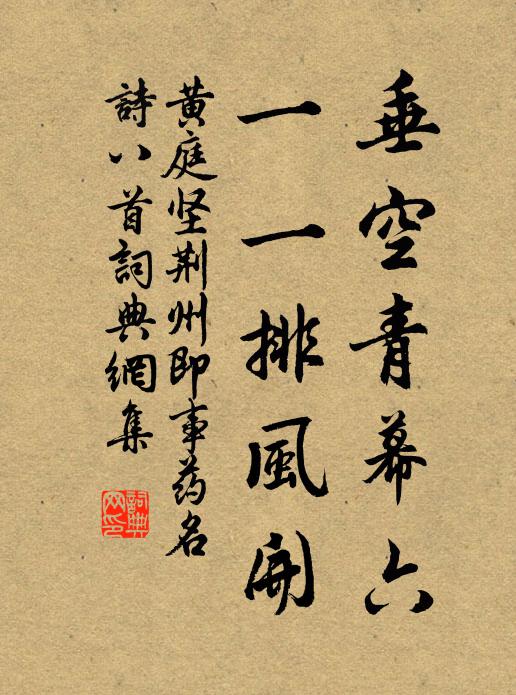 垂空青幕六
一一排風開
黄庭坚荆州即事药名
詩八首詞典網集
詞典網印